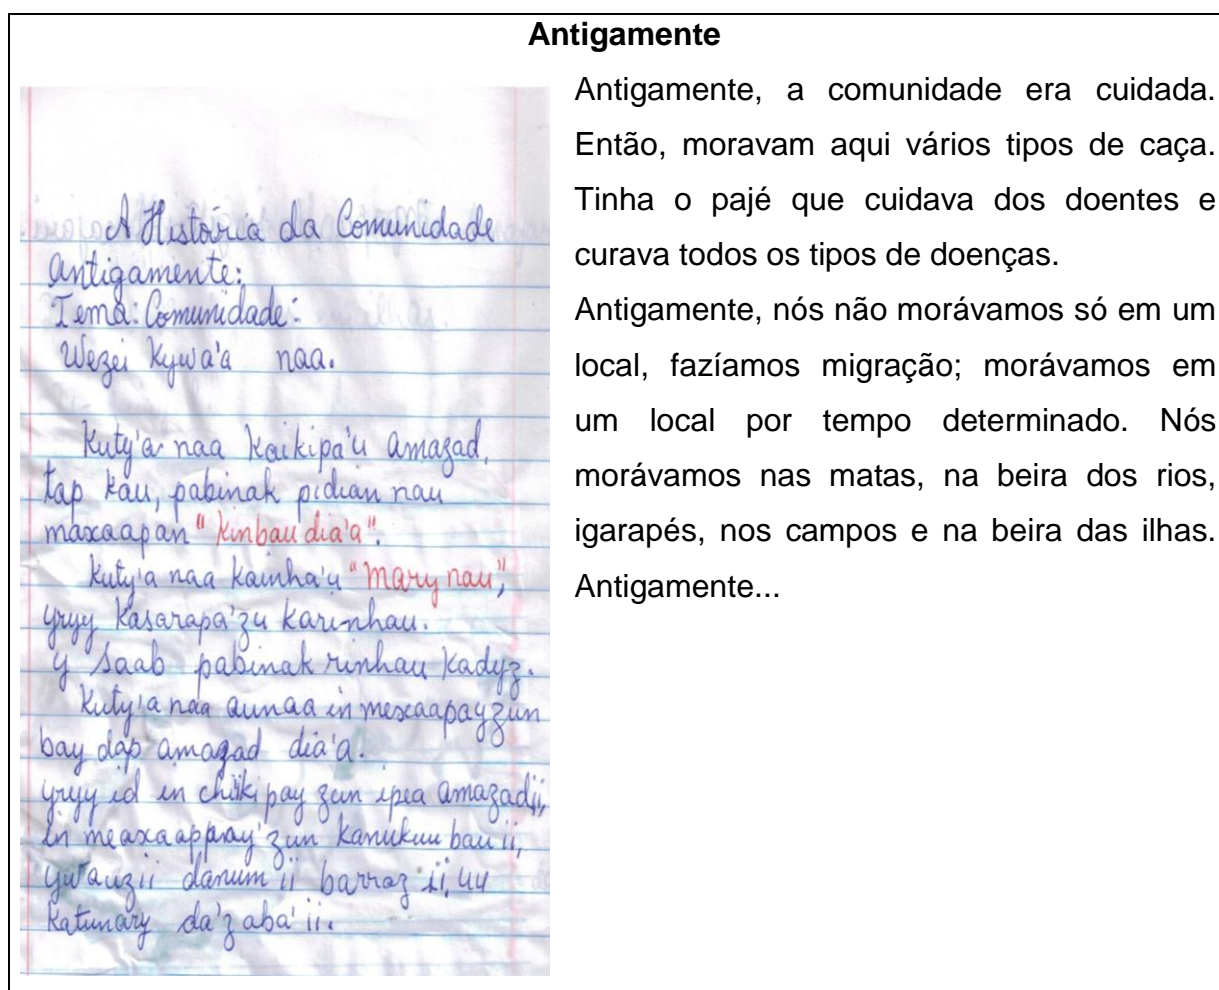 Antigamente
A História da Comunidade
Antigamente:
Tema: Comunidade:
Wezei Kywa'a naa.
Kuty'a naa kaikipa'u amazad,
tap kau, pabinak pidian nau
maxaapan "kinbau dia'a".
Kuty'a naa kainha'u "mary nau",
yryy kasarapa'zu karinhau.
y saab pabinak rinhau kadyz.
Kuty'a naa aunaa in mexaapay zun
bay dap amazad dia'a.
yryy id in chikipay zun ipea amazad ii,
in meaxaappay'zun kanukuu bau ii,
ywauzii danum ii barraz ii, uy
katunary da'z aba' ii.
Antigamente, a comunidade era cuidada.
Então, moravam aqui vários tipos de caça.
Tinha o pajé que cuidava dos doentes e
curava todos os tipos de doenças.
Antigamente, nós não morávamos só em um
local, fazíamos migração; morávamos em
um local por tempo determinado. Nós
morávamos nas matas, na beira dos rios,
igarapés, nos campos e na beira das ilhas.
Antigamente...